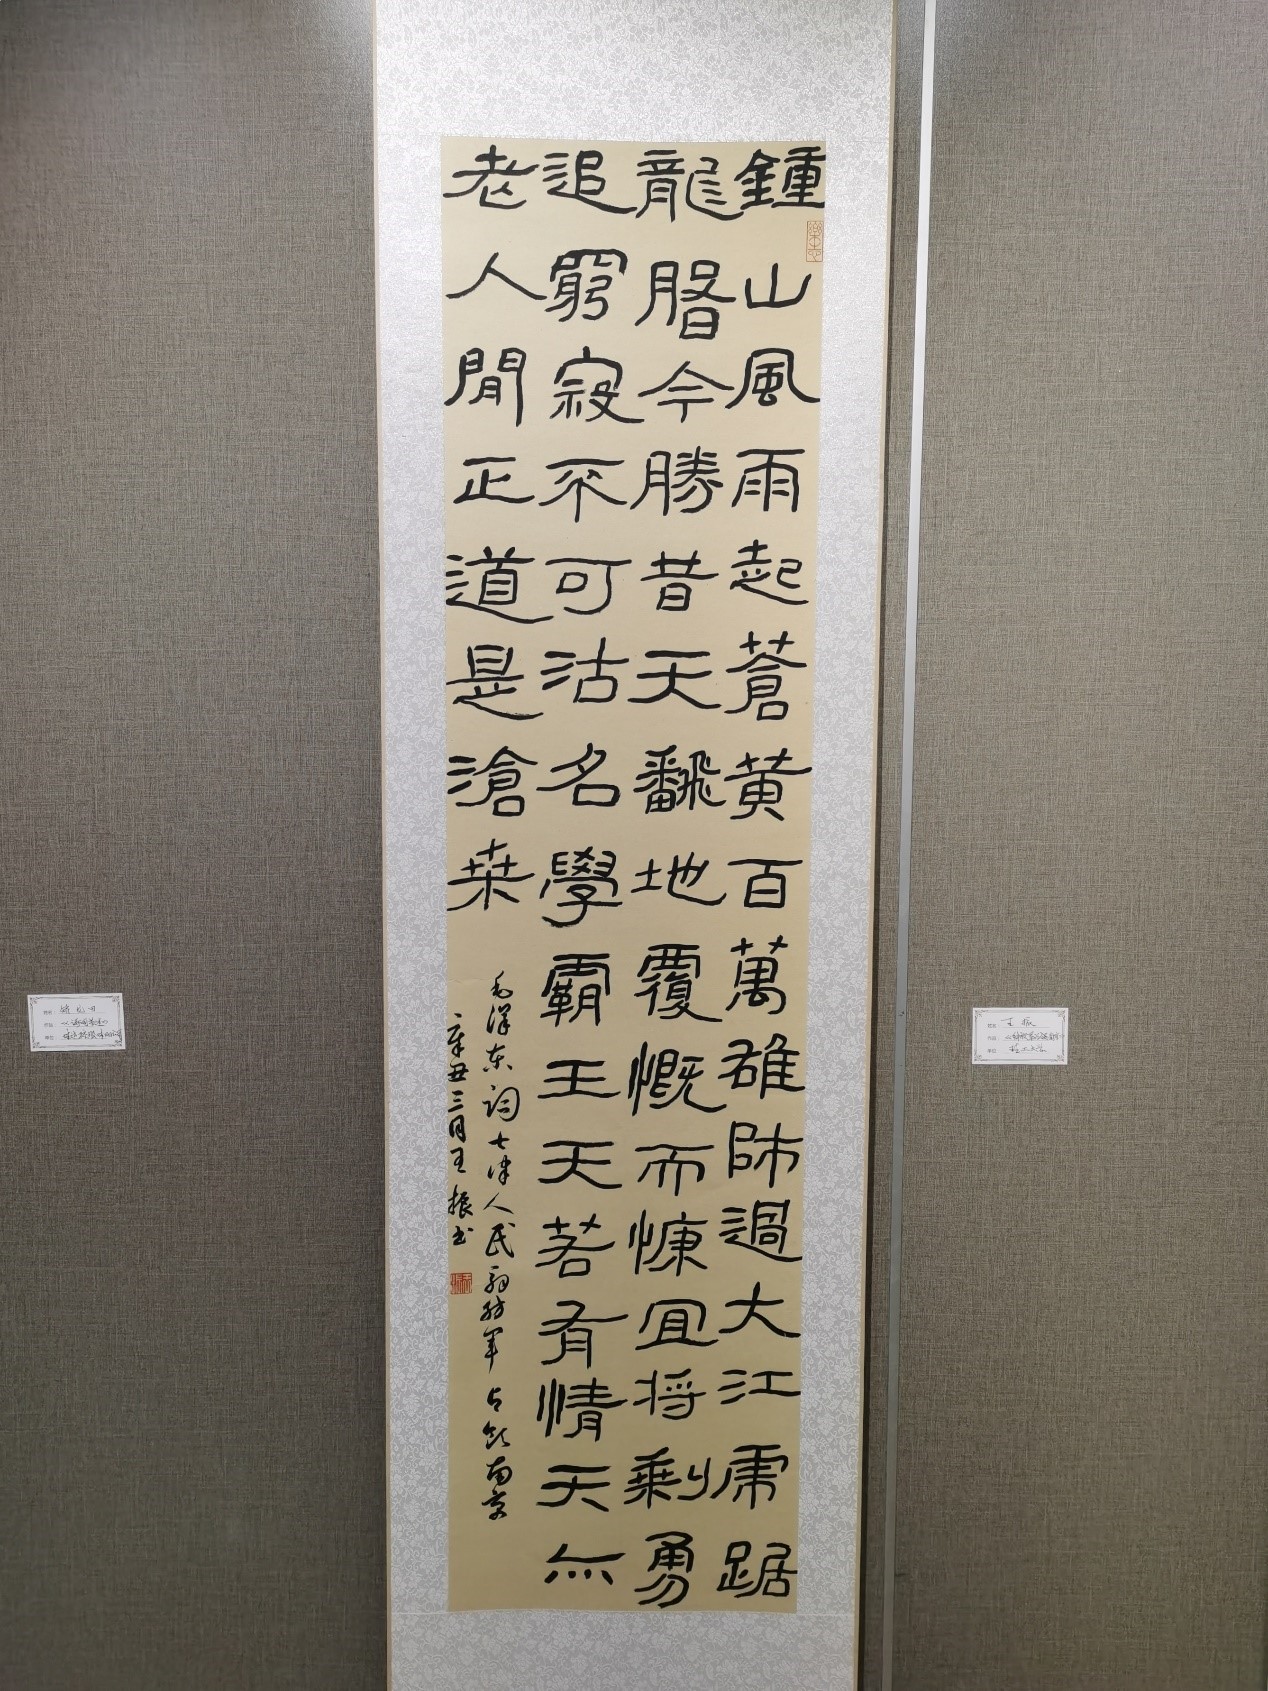 鍾山風雨起蒼黃百萬雄師過大江虎踞
龍𦡱今勝昔天飜地覆慨而慷宜將剩勇
追窮寇不可沽名學霸王天若有情天亦
老人間正道是滄桑
毛澤東詞七律人民解放軍占領南京
辛丑三月王振书
王振